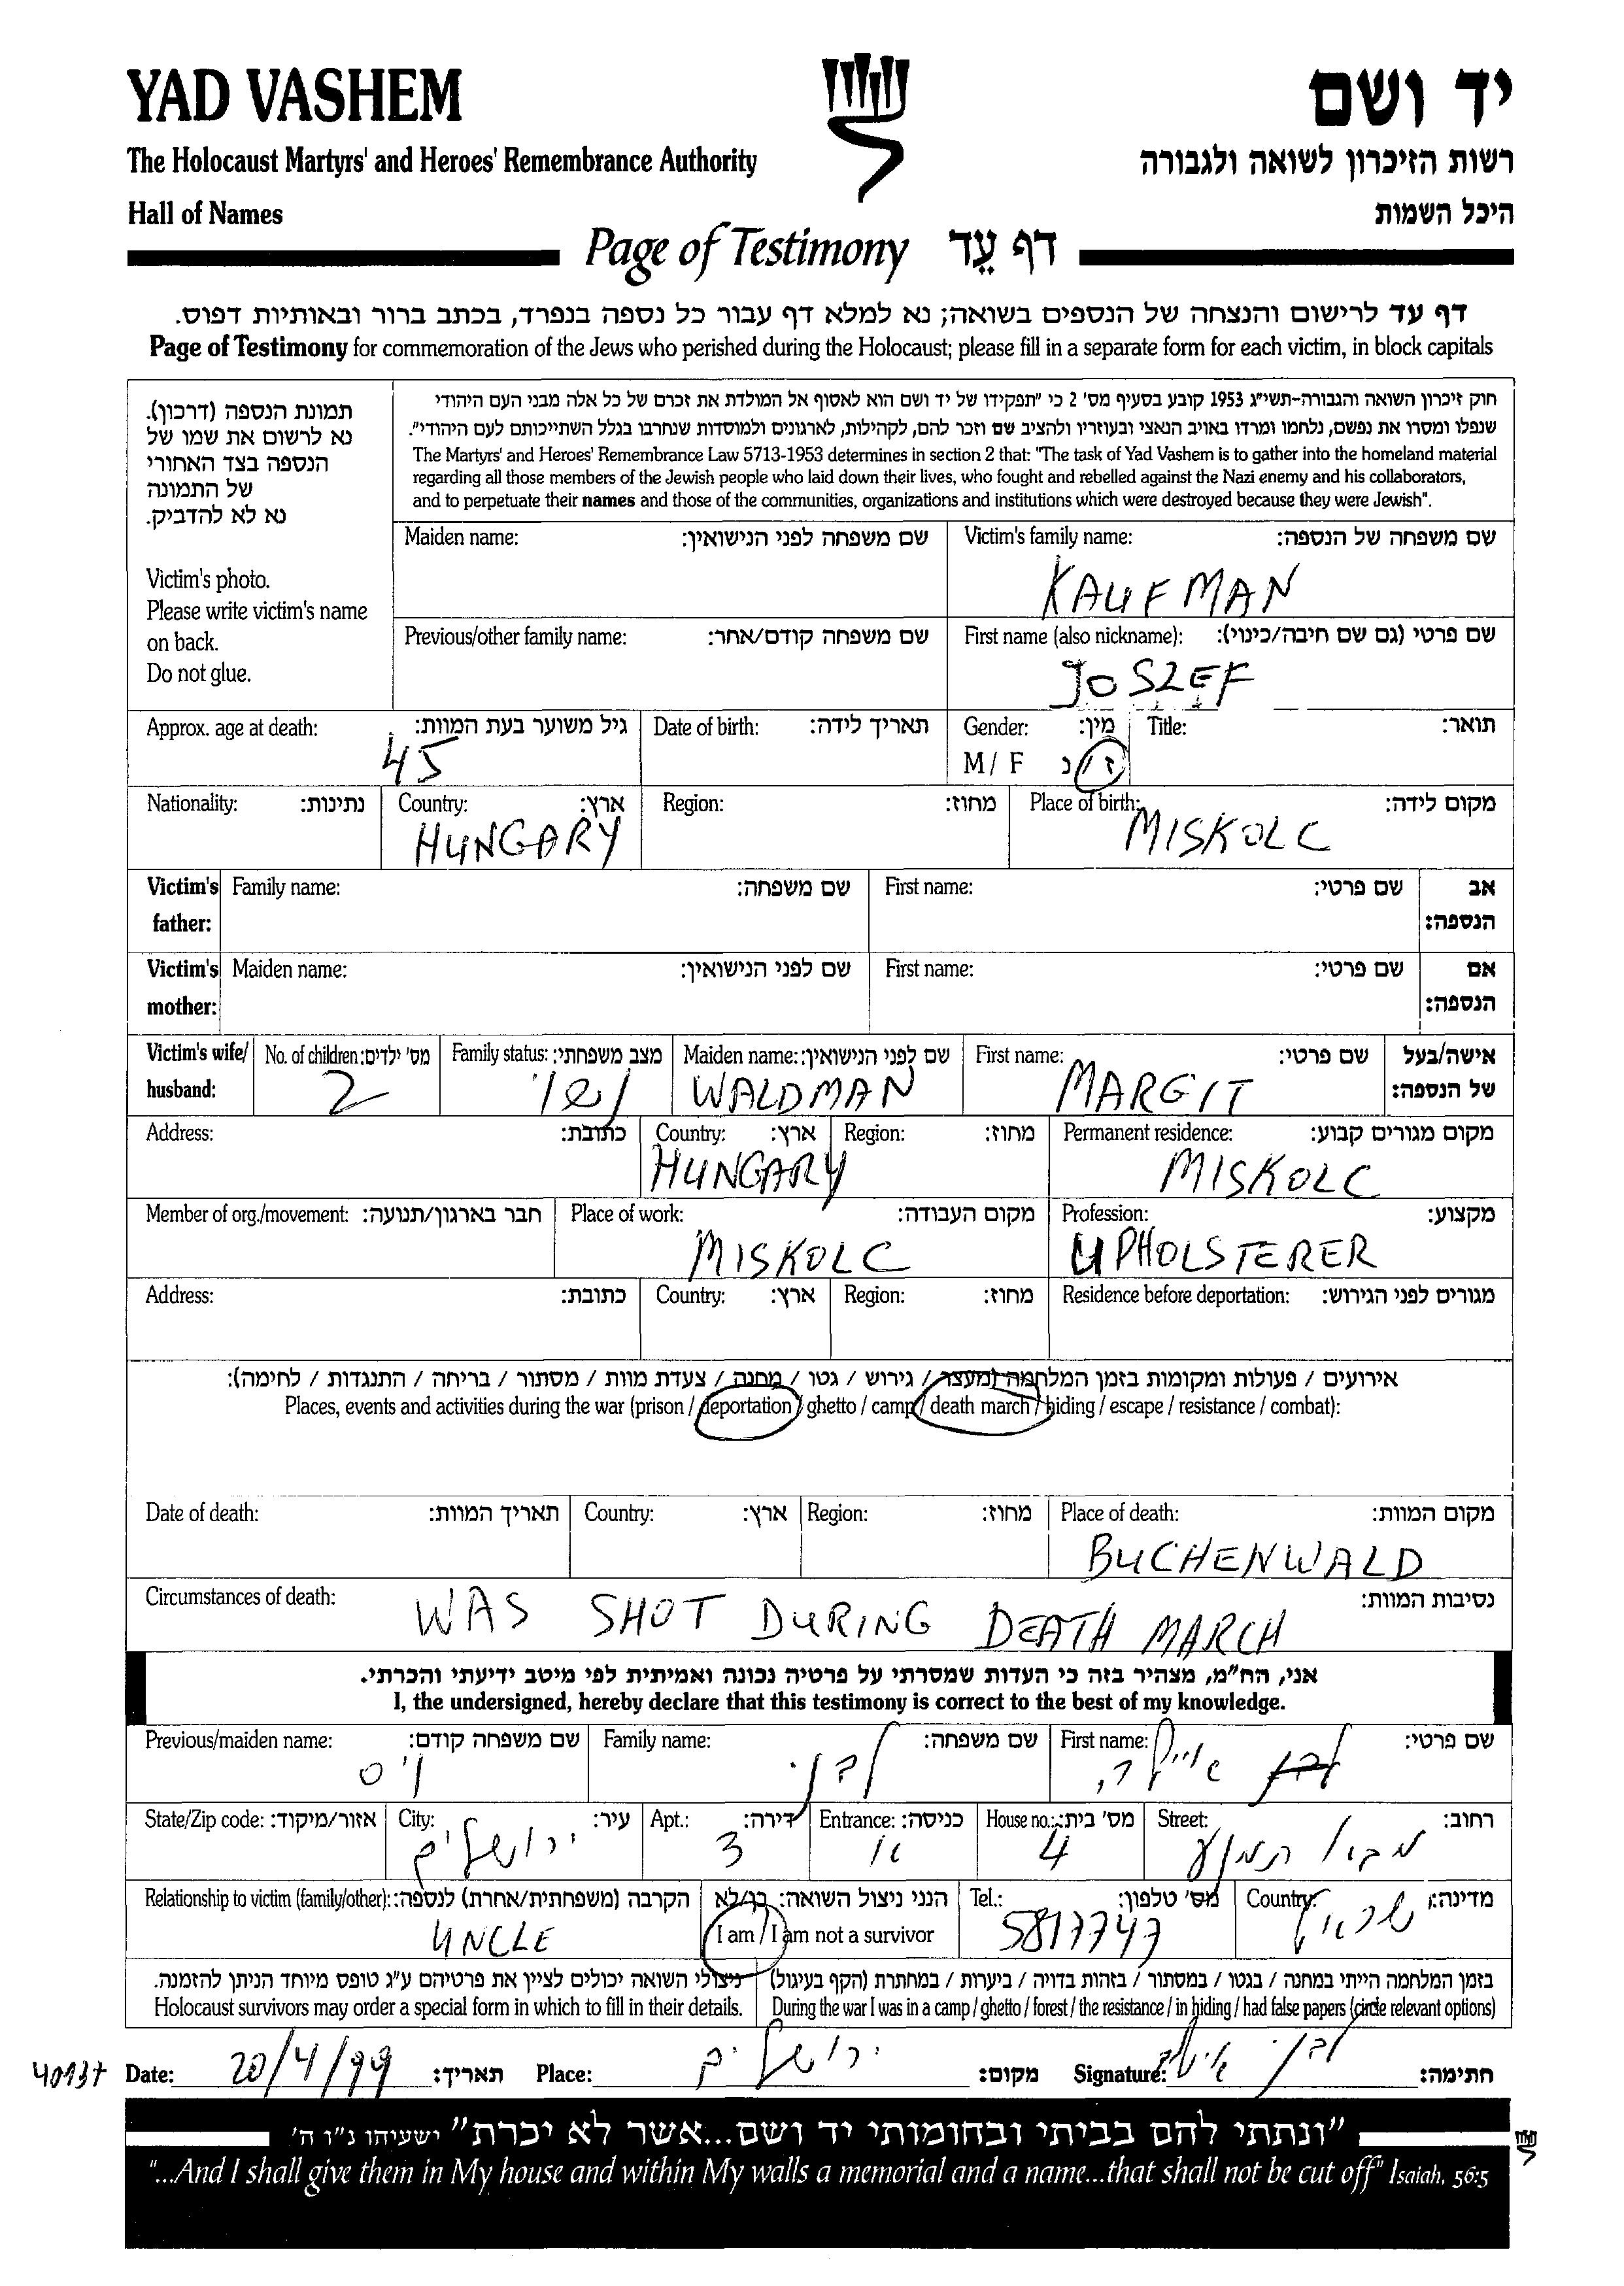 YAD VASHEM
יד ושם
The Holocaust Martyrs' and Heroes' Remembrance Authority
רשות הזיכרון לשואה ולגבורה
Hall of Names
היכל השמות
Page of Testimony דף עֵד
דף עד לרישום והנצחה של הנספים בשואה; נא למלא דף עבור כל נספה בנפרד, בכתב ברור ובאותיות דפוס.
Page of Testimony for commemoration of the Jews who perished during the Holocaust; please fill in a separate form for each victim, in block capitals
תמונת הנספה (דרכון).
נא לרשום את שמו של
הנספה בצד האחורי
של התמונה
נא לא להדביק.
Victim's photo.
Please write victim's name
on back.
Do not glue.
חוק זיכרון השואה והגבורה-תשי"ג 1953 קובע בסעיף מס' 2 כי "תפקידו של יד ושם הוא לאסוף אל המולדת את זכרם של כל אלה מבני העם היהודי
שנפלו ומסרו את נפשם, נלחמו ומרדו באויב הנאצי ובעוזריו ולהציב שם וזכר להם, לקהילות, לארגונים ולמוסדות שנחרבו בגלל השתייכותם לעם היהודי".
The Martyrs' and Heroes' Remembrance Law 5713-1953 determines in section 2 that: "The task of Yad Vashem is to gather into the homeland material
regarding all those members of the Jewish people who laid down their lives, who fought and rebelled against the Nazi enemy and his collaborators,
and to perpetuate their names and those of the communities, organizations and institutions which were destroyed because they were Jewish".
Maiden name: שם משפחה לפני הנישואין:
Victim's family name: שם משפחה של הנספה:
KAUFMAN
Previous/other family name: שם משפחה קודם/אחר:
First name (also nickname): שם פרטי (גם שם חיבה/כינוי):
JOSZEF
Approx. age at death: גיל משוער בעת המוות:
45
Date of birth: תאריך לידה:
Gender: מין:
M / F ז / נ
Title: תואר:
Nationality: נתינות:
Country: ארץ:
HUNGARY
Region: מחוז:
Place of birth: מקום לידה:
MISKOLC
Victim's father: Family name: שם משפחה:
First name: שם פרטי: אב הנספה:
Victim's mother: Maiden name: שם לפני הנישואין:
First name: שם פרטי: אם הנספה:
Victim's wife/ husband:
No. of children: מס' ילדים:
2
Family status: מצב משפחתי:
נשוי
Maiden name: שם לפני הנישואין:
WALDMAN
First name: שם פרטי:
MARGIT
אישה/בעל של הנספה:
Address: כתובת:
Country: ארץ:
HUNGARY
Region: מחוז:
Permanent residence: מקום מגורים קבוע:
MISKOLC
Member of org./movement: חבר בארגון/תנועה:
Place of work: מקום העבודה:
MISKOLC
Profession: מקצוע:
UPHOLSTERER
Address: כתובת:
Country: ארץ:
Region: מחוז:
Residence before deportation: מגורים לפני הגירוש:
אירועים / פעולות ומקומות בזמן המלחמה (מעצר / גירוש / גטו / מחנה / צעדת מוות / מסתור / בריחה / התנגדות / לחימה):
Places, events and activities during the war (prison / deportation / ghetto / camp / death march / hiding / escape / resistance / combat):
Date of death: תאריך המוות:
Country: ארץ:
Region: מחוז:
Place of death: מקום המוות:
BUCHENWALD
Circumstances of death: נסיבות המוות:
WAS SHOT DURING DEATH MARCH
אני, הח"מ, מצהיר בזה כי העדות שמסרתי על פרטיה נכונה ואמיתית לפי מיטב ידיעתי והכרתי.
I, the undersigned, hereby declare that this testimony is correct to the best of my knowledge.
Previous/maiden name: שם משפחה קודם:
ויס
Family name: שם משפחה:
לבני
First name: שם פרטי:
State/Zip code: אזור/מיקוד:
City: עיר:
ירושלים
Apt.: דירה:
3
Entrance: כניסה:
House no.: מס' בית:
4
Street: רחוב:
Relationship to victim (family/other): הקרבה (משפחתית/אחרת) לנספה:
UNCLE
הנני ניצול השואה: כן/לא
I am / I am not a survivor
Tel.: מס' טלפון:
5817747
Country: מדינה:
ישראל
ניצולי השואה יכולים לציין את פרטיהם ע"ג טופס מיוחד הניתן להזמנה.
Holocaust survivors may order a special form in which to fill in their details.
בזמן המלחמה הייתי במחנה / בגטו / במסתור / בזהות בדויה / ביערות / במחתרת (הקף בעיגול)
During the war I was in a camp / ghetto / forest / the resistance / in hiding / had false papers (circle relevant options)
40137
Date: 20/4/99 תאריך:
Place: ירושלים מקום:
Signature: לבני חתימה:
"ונתתי להם בביתי ובחומותי יד ושם...אשר לא יכרת" ישעיהו נ"ו ה'
"...And I shall give them in My house and within My walls a memorial and a name...that shall not be cut off" Isaiah, 56:5